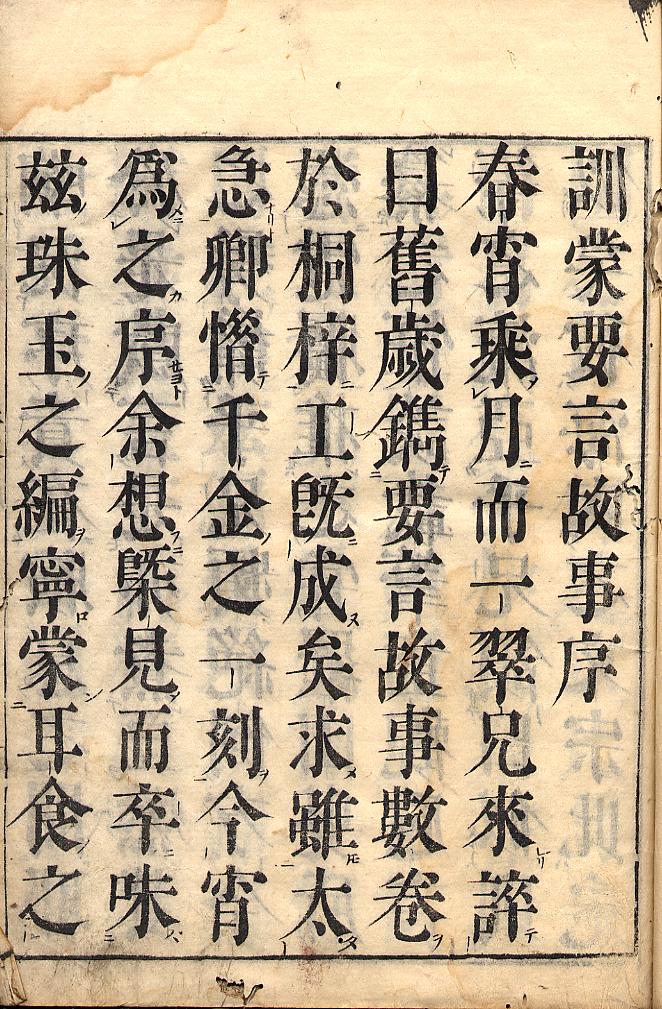 訓蒙要言故事序
春宵乘月而一翠兄來誶
曰舊歲鐫要言故事數卷
於桐梓工既成矣求雖太
急卿惜千金之一刻今宵
爲之序余想槩見而卒味
茲珠玉之編寧蒙耳食之